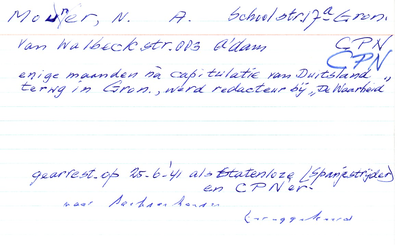 N. A. Schoolstr. 17a Gron.
Van Walbeckstr. A'dam CPN
CPN
enige maanden na capitulatie van Duitsland
terug in Gron., werd redacteur bij "De Waarheid"
gearrest. op 25-6-'41 als Statenloze (Spanjestrijder)
en CPN'er
naar
teruggekeerd